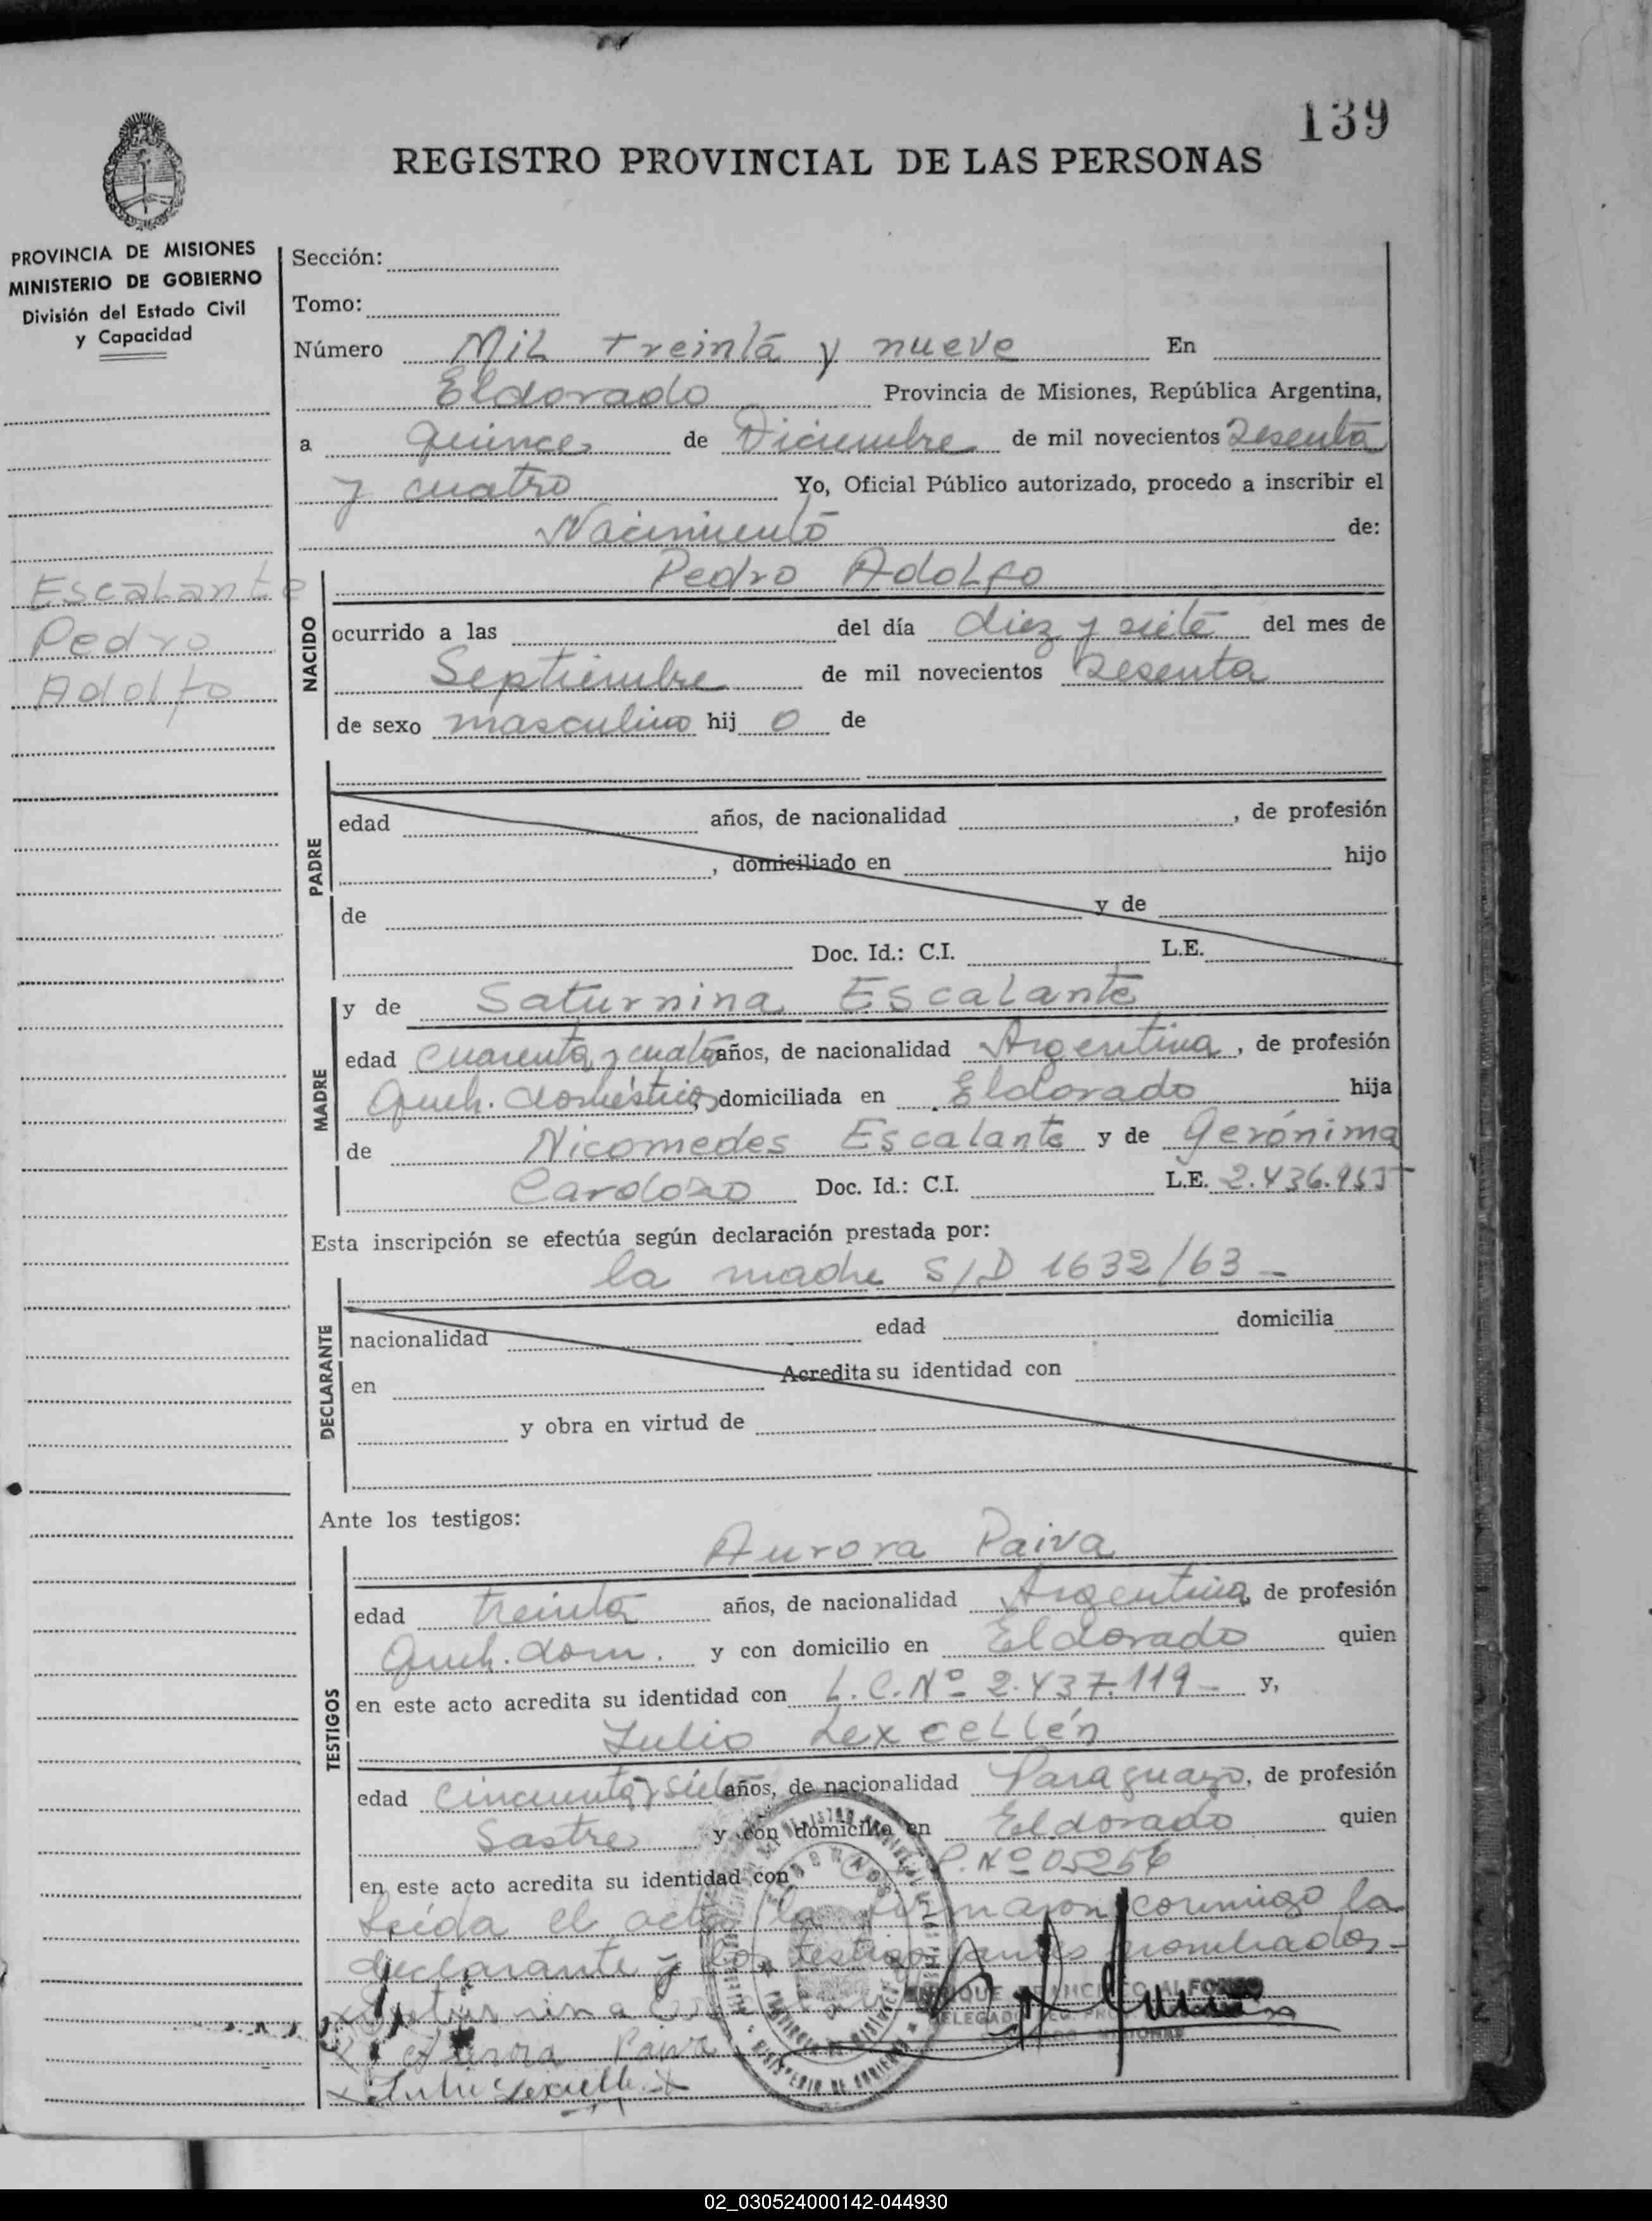 139
REGISTRO PROVINCIAL DE LAS PERSONAS
PROVINCIA DE MISIONES
MINISTERIO DE GOBIERNO
División del Estado Civil
y Capacidad
Escalante
Pedro
Adolfo
Sección:
Tomo:
Número Mil treinta y nueve En
Eldorado Provincia de Misiones, República Argentina,
a quince de Diciembre de mil novecientos sesenta
y cuatro Yo, Oficial Público autorizado, procedo a inscribir el
Nacimiento de:
Pedro Adolfo
NACIDO
ocurrido a las del día diez y siete del mes de
Septiembre de mil novecientos sesenta
de sexo masculino hij o de
PADRE
edad años, de nacionalidad , de profesión
, domiciliado en hijo
de y de
Doc. Id.: C.I. L.E.
MADRE
y de Saturnina Escalante
edad cuarenta y cuatro años, de nacionalidad Argentina, de profesión
Queh. domésticos, domiciliada en Eldorado hija
de Nicomedes Escalante y de Gerónima
Cardozo Doc. Id.: C.I. L.E. 2.436.955
Esta inscripción se efectúa según declaración prestada por:
la madre S/D 1632/63 -
DECLARANTE
nacionalidad edad domicilia
en Acredita su identidad con
y obra en virtud de
Ante los testigos:
Aurora Paiva
TESTIGOS
edad treinta años, de nacionalidad Argentina, de profesión
Queh. dom. y con domicilio en Eldorado quien
en este acto acredita su identidad con L.C. Nº 2.437.119 - y,
Julio Lexcellén
edad cincuenta y siete años, de nacionalidad Paraguayo, de profesión
Sastre y con domicilio en Eldorado quien
en este acto acredita su identidad con P. Nº 05256
Leída el acta la firmaron conmigo la
declarante y los testigos antes nombrados -
Saturnina
ENRIQUE FRANCISCO ALFONSO
Aurora Paiva
Julio Lexcellén
02_030524000142-044930